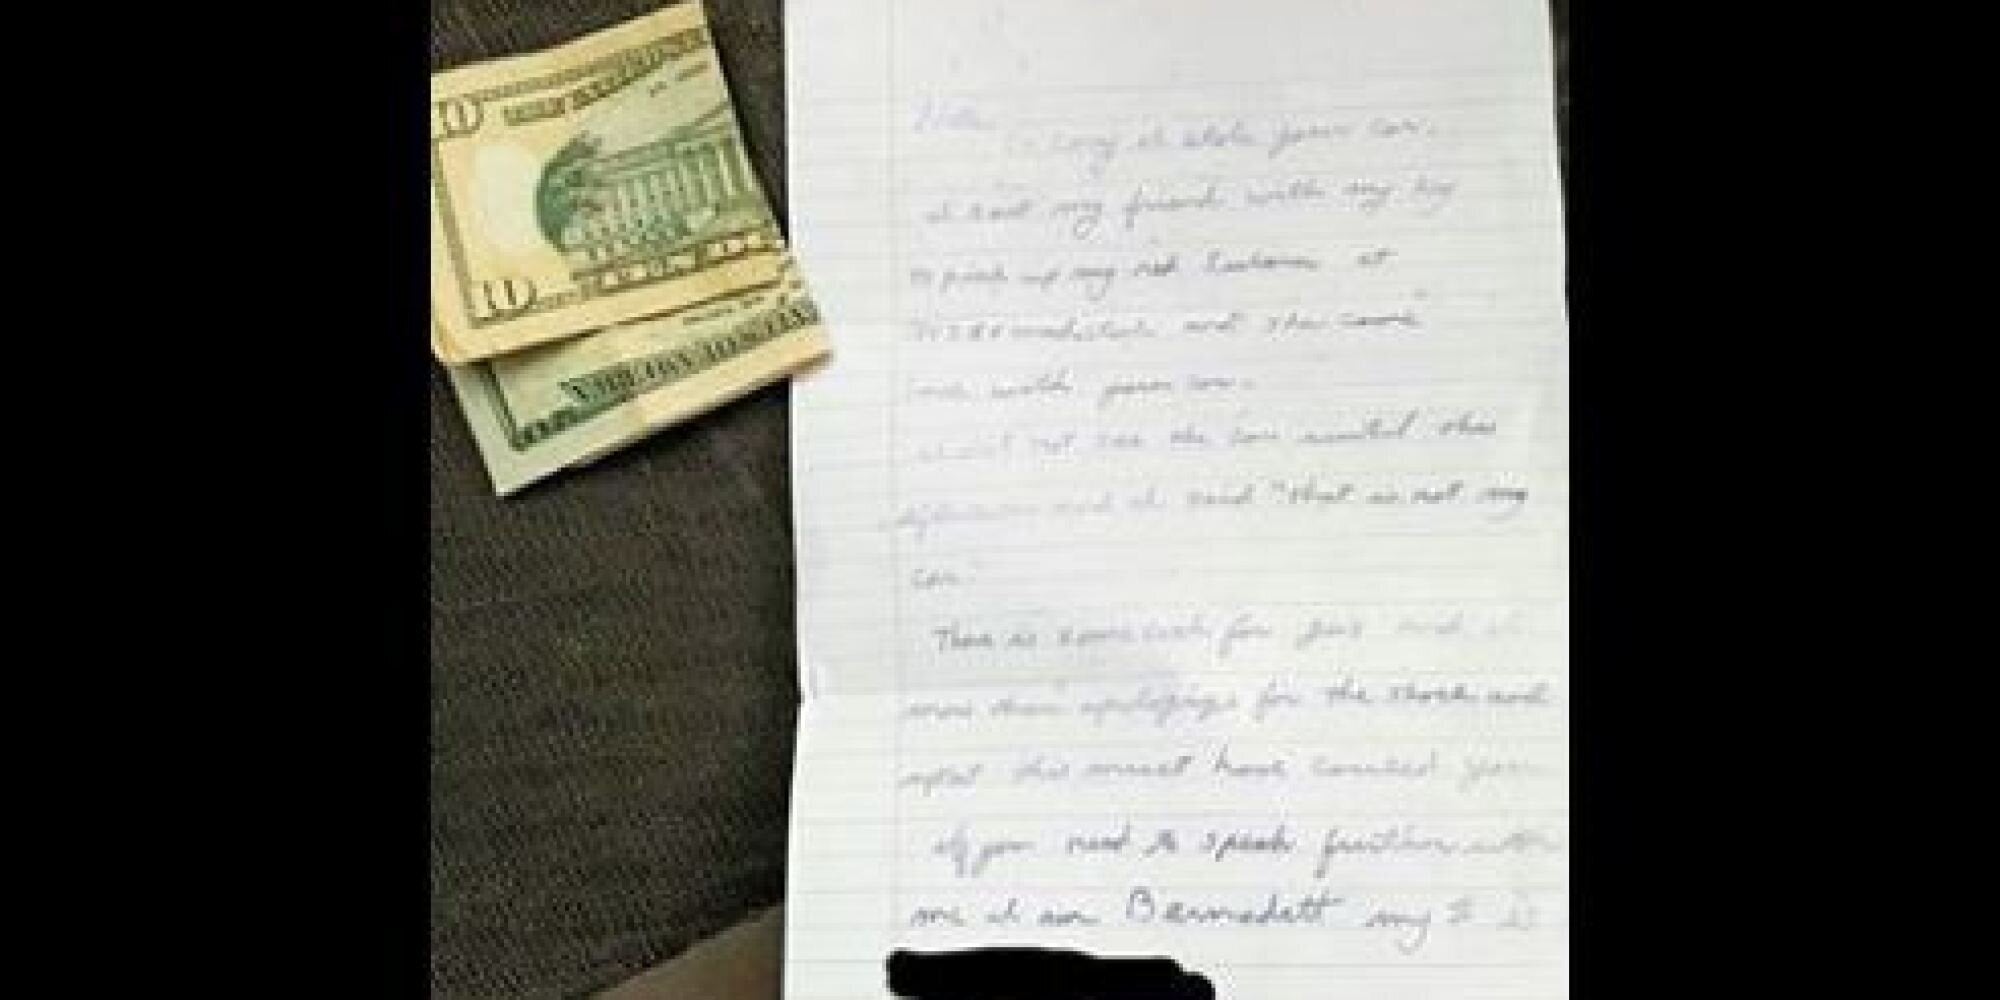 10
10
Hello,
So sorry I stole your car.
I sent my friend with my key
to pick up my red Subaru at
and she came
with your car.
I did not see the car until this
and I said "that is not my
car."
There is some cash for gas and I
more than apologize for the shock and
upset this must have caused you
If you need to speak further with
me I am Bernadette my # is